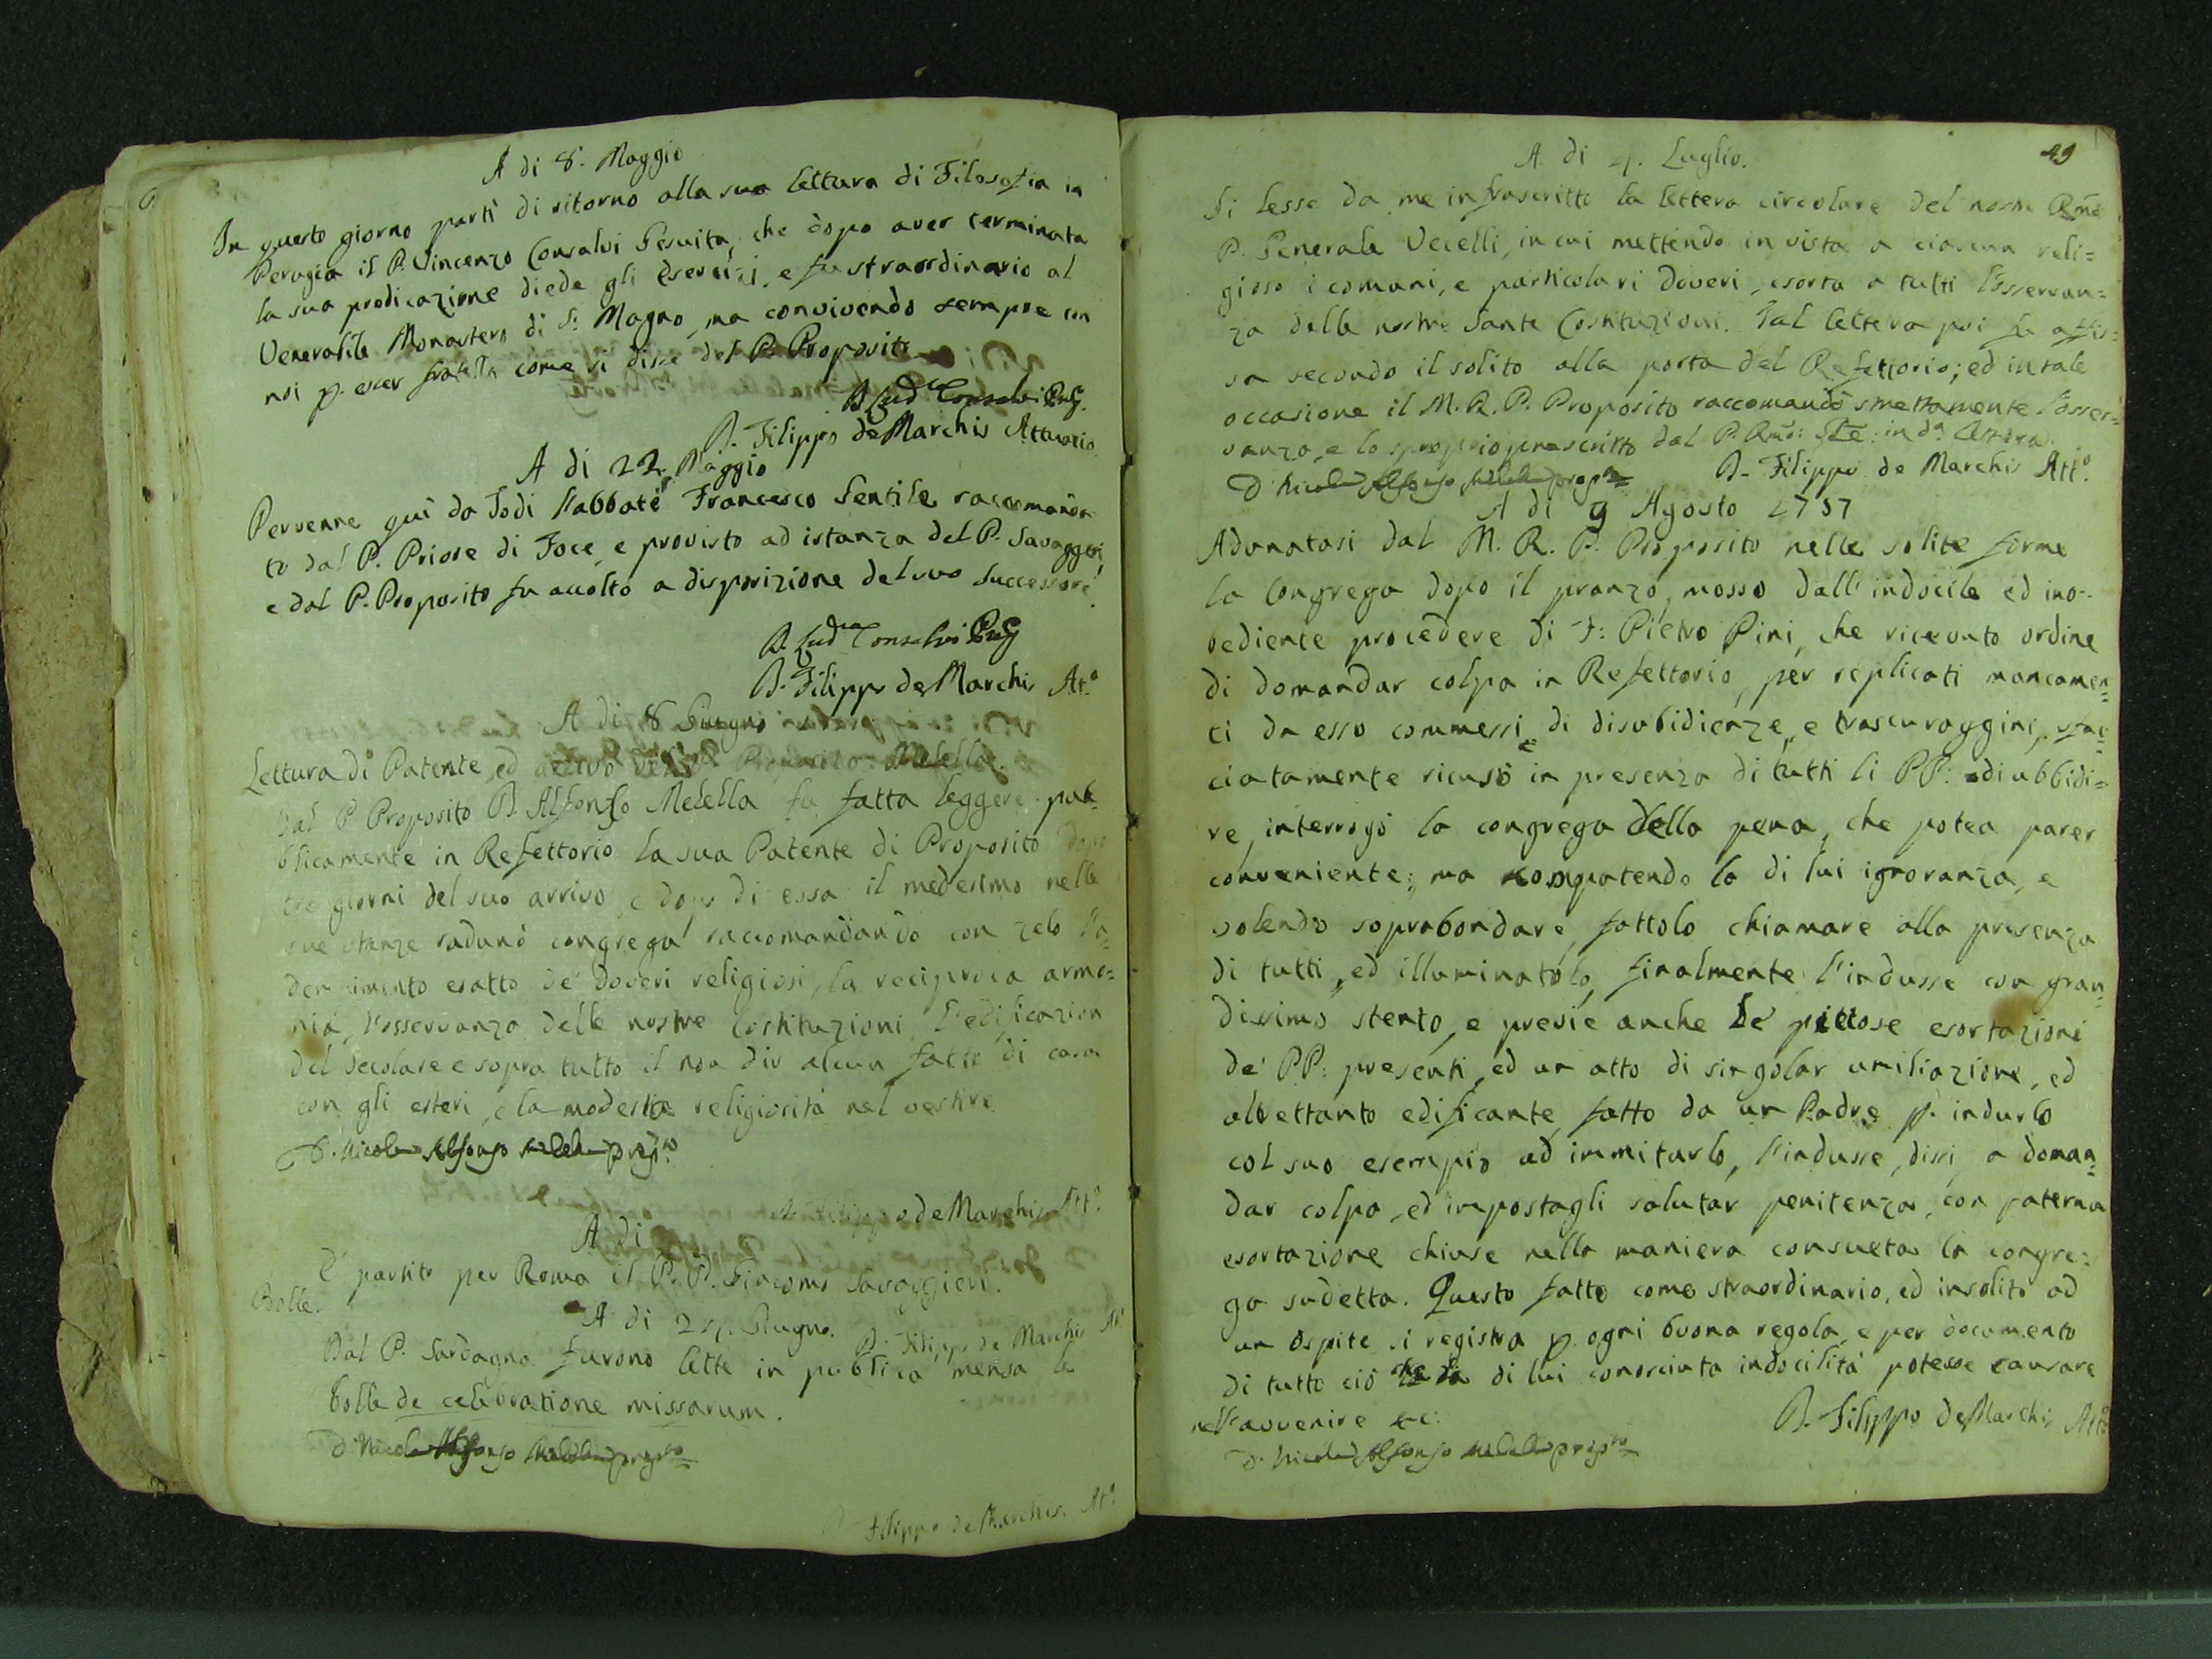 A di 8. Maggio
In questo giorno partì di ritorno alla sua lettura di Filosofia in
Perugia il P. Vincenzo Consalvi Gesuita, che dopo aver terminata
la sua predicazione diede gli Esercizi, e fu straordinario al
Venerabile Monastero di S. Magno, ma convivendo sempre con
noi p. esser fratello come si disse del P. Proposito
D. Lud.co Consalvi
D. Filippo de Marchis Attuario
A di 22. Maggio
Pervenne quì da Todi l'abbate Francesco Gentile raccomanda
to dal P. Priore di Foce, e provisto ad istanza del P. Savaggeri,
e dal P. Proposito fu accolto a disposizione del suo Successore.
D. Lud.co Consalvi
D. Filippo de Marchis At.o
A di 8 Giugno
Lettura di Patente, ed arrivo Melella.
Dal P. Proposito D. Alfonso Melella fu fatta leggere pub=
blicamente in Refettorio la sua Patente di Proposito dopo
tre giorni del suo arrivo, e dopo di essa il medesimo nelle
sue stanze radunò congrega raccomandando con zelo l'a=
dempimento esatto de' doveri religiosi, la reciproca armo=
nia, l'osservanza delle nostre Costituzioni, l'edificazion
del secolare e sopra tutto il non dir alcun fatto di casa
con gli esteri, e la modesta religiosità nel vestire
D. Nicola Alfonso Melella prop.to
D. Filippo de Marchis Att.o
A di
E' partito per Roma il P. D. Giacomo Savaggieri.
D. Filippo de Marchis At.o
Bolle.
A di 24. Giugno.
Dal P. Sardagna furono lette in publica mensa le
bolle de celebratione missarum.
D. Nicola Alfonso Melella prop.to
D. Filippo de Marchis. At.o
49
A di 4. Luglio.
Si lesse da me infrascritto la lettera circolare del nostro Rmo
P. Generale Vecelli, in cui mettendo in vista a ciascun reli=
gioso i comuni, e particolari doveri, esorta a tutti l'osservan=
za delle nostre Sante Costituzioni. Tal lettera poi fu affis=
sa secondo il solito alla porta del Refettorio; ed in tale
occasione il M. R. P. Proposito raccomandò strettamente l'osser=
vanza, e lo sproprio prescritto dal P. Rmo: in d.a lettera.
D. Nicola Alfonso Melella prop.to D. Filippo de Marchis Att.o
A di 9 Agosto 1757
Adunatasi dal M. R. P. Proposito nelle solite forme
la Congrega dopo il pranzo, mosso dall'indocile ed ino=
bediente procedere di F: Pietro Pini, che ricevuto ordine
di domandar colpa in Refettorio, per replicati mancamen=
ti da esso commessi, e di disubidienze, e trascuraggini, sfac=
ciatamente ricusò in presenza di tutti li PP: di ubbidi=
re, interrogò la congrega della pena, che potea parer
conveniente; ma compatendo la di lui ignoranza, e
volendo soprabondare, fattolo chiamare alla presenza
di tutti, ed illuminatolo, finalmente l'indusse con gran=
dissimo stento, e previe anche le pietose esortazioni
de' PP: presenti, ed un atto di singolar umiliazione, ed
altrettanto edificante, fatto da un Padre p. indurlo
col suo esempio ad immitarlo, l'indusse, dissi, a doman=
dar colpa, ed impostagli salutar penitenza, con paterna
esortazione chiuse nella maniera consueta la congre=
ga sudetta. Questo fatto come straordinario, ed insolito ad
un ospite si registra p. ogni buona regola, e per documento
di tutto ciò che la di lui conosciuta indocilità potesse causare
nell'avvenire &c.
D. Filippo de Marchis Att.o
D. Nicola Alfonso Melella prop.to